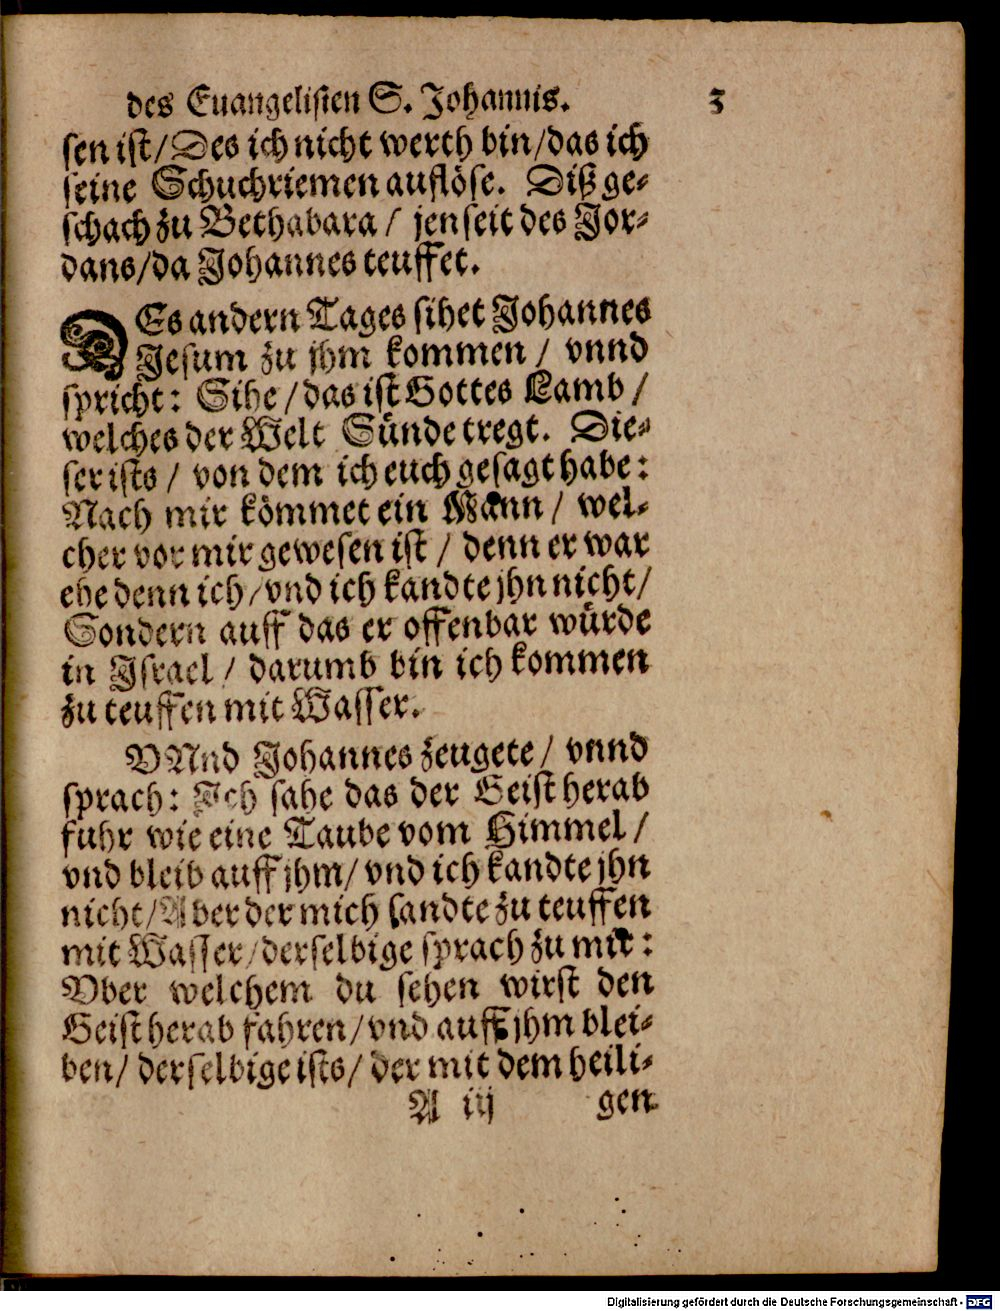 des Euangelisten S. Johannis. 3
sen ist/Des ich nicht werth bin/das ich
seine Schuchriemen auflöse. Diß ge-
schach zu Bethabara / jenseit des Jor-
dans/da Johannes teuffet.
DEs andern Tages sihet Johannes
Jesum zu jhm kommen / vnnd
spricht: Sihe /das ist Gottes Lamb /
welches der Welt Sünde tregt. Die-
ser ists / von dem ich euch gesagt habe:
Nach mir kömmet ein Mann / wel-
cher vor mir gewesen ist / denn er war
ehe denn ich/vnd ich kandte jhn nicht/
Sondern auff das er offenbar würde
in Israel / darumb bin ich kommen
zu teuffen mit Wasser.
VNnd Johannes zeugete / vnnd
sprach: Ich sahe das der Geist herab
fuhr wie eine Taube vom Himmel /
vnd bleib auff jhm/ vnd ich kandte jhn
nicht/Aber der mich sandte zu teuffen
mit Wasser/derselbige sprach zu mir:
Vber welchem du sehen wirst den
Geist herab fahren/vnd auff jhm blei-
ben/ derselbige ists/ der mit dem heili-
A iij gen
Digitalisierung gefördert durch die Deutsche Forschungsgemeinschaft - DFG